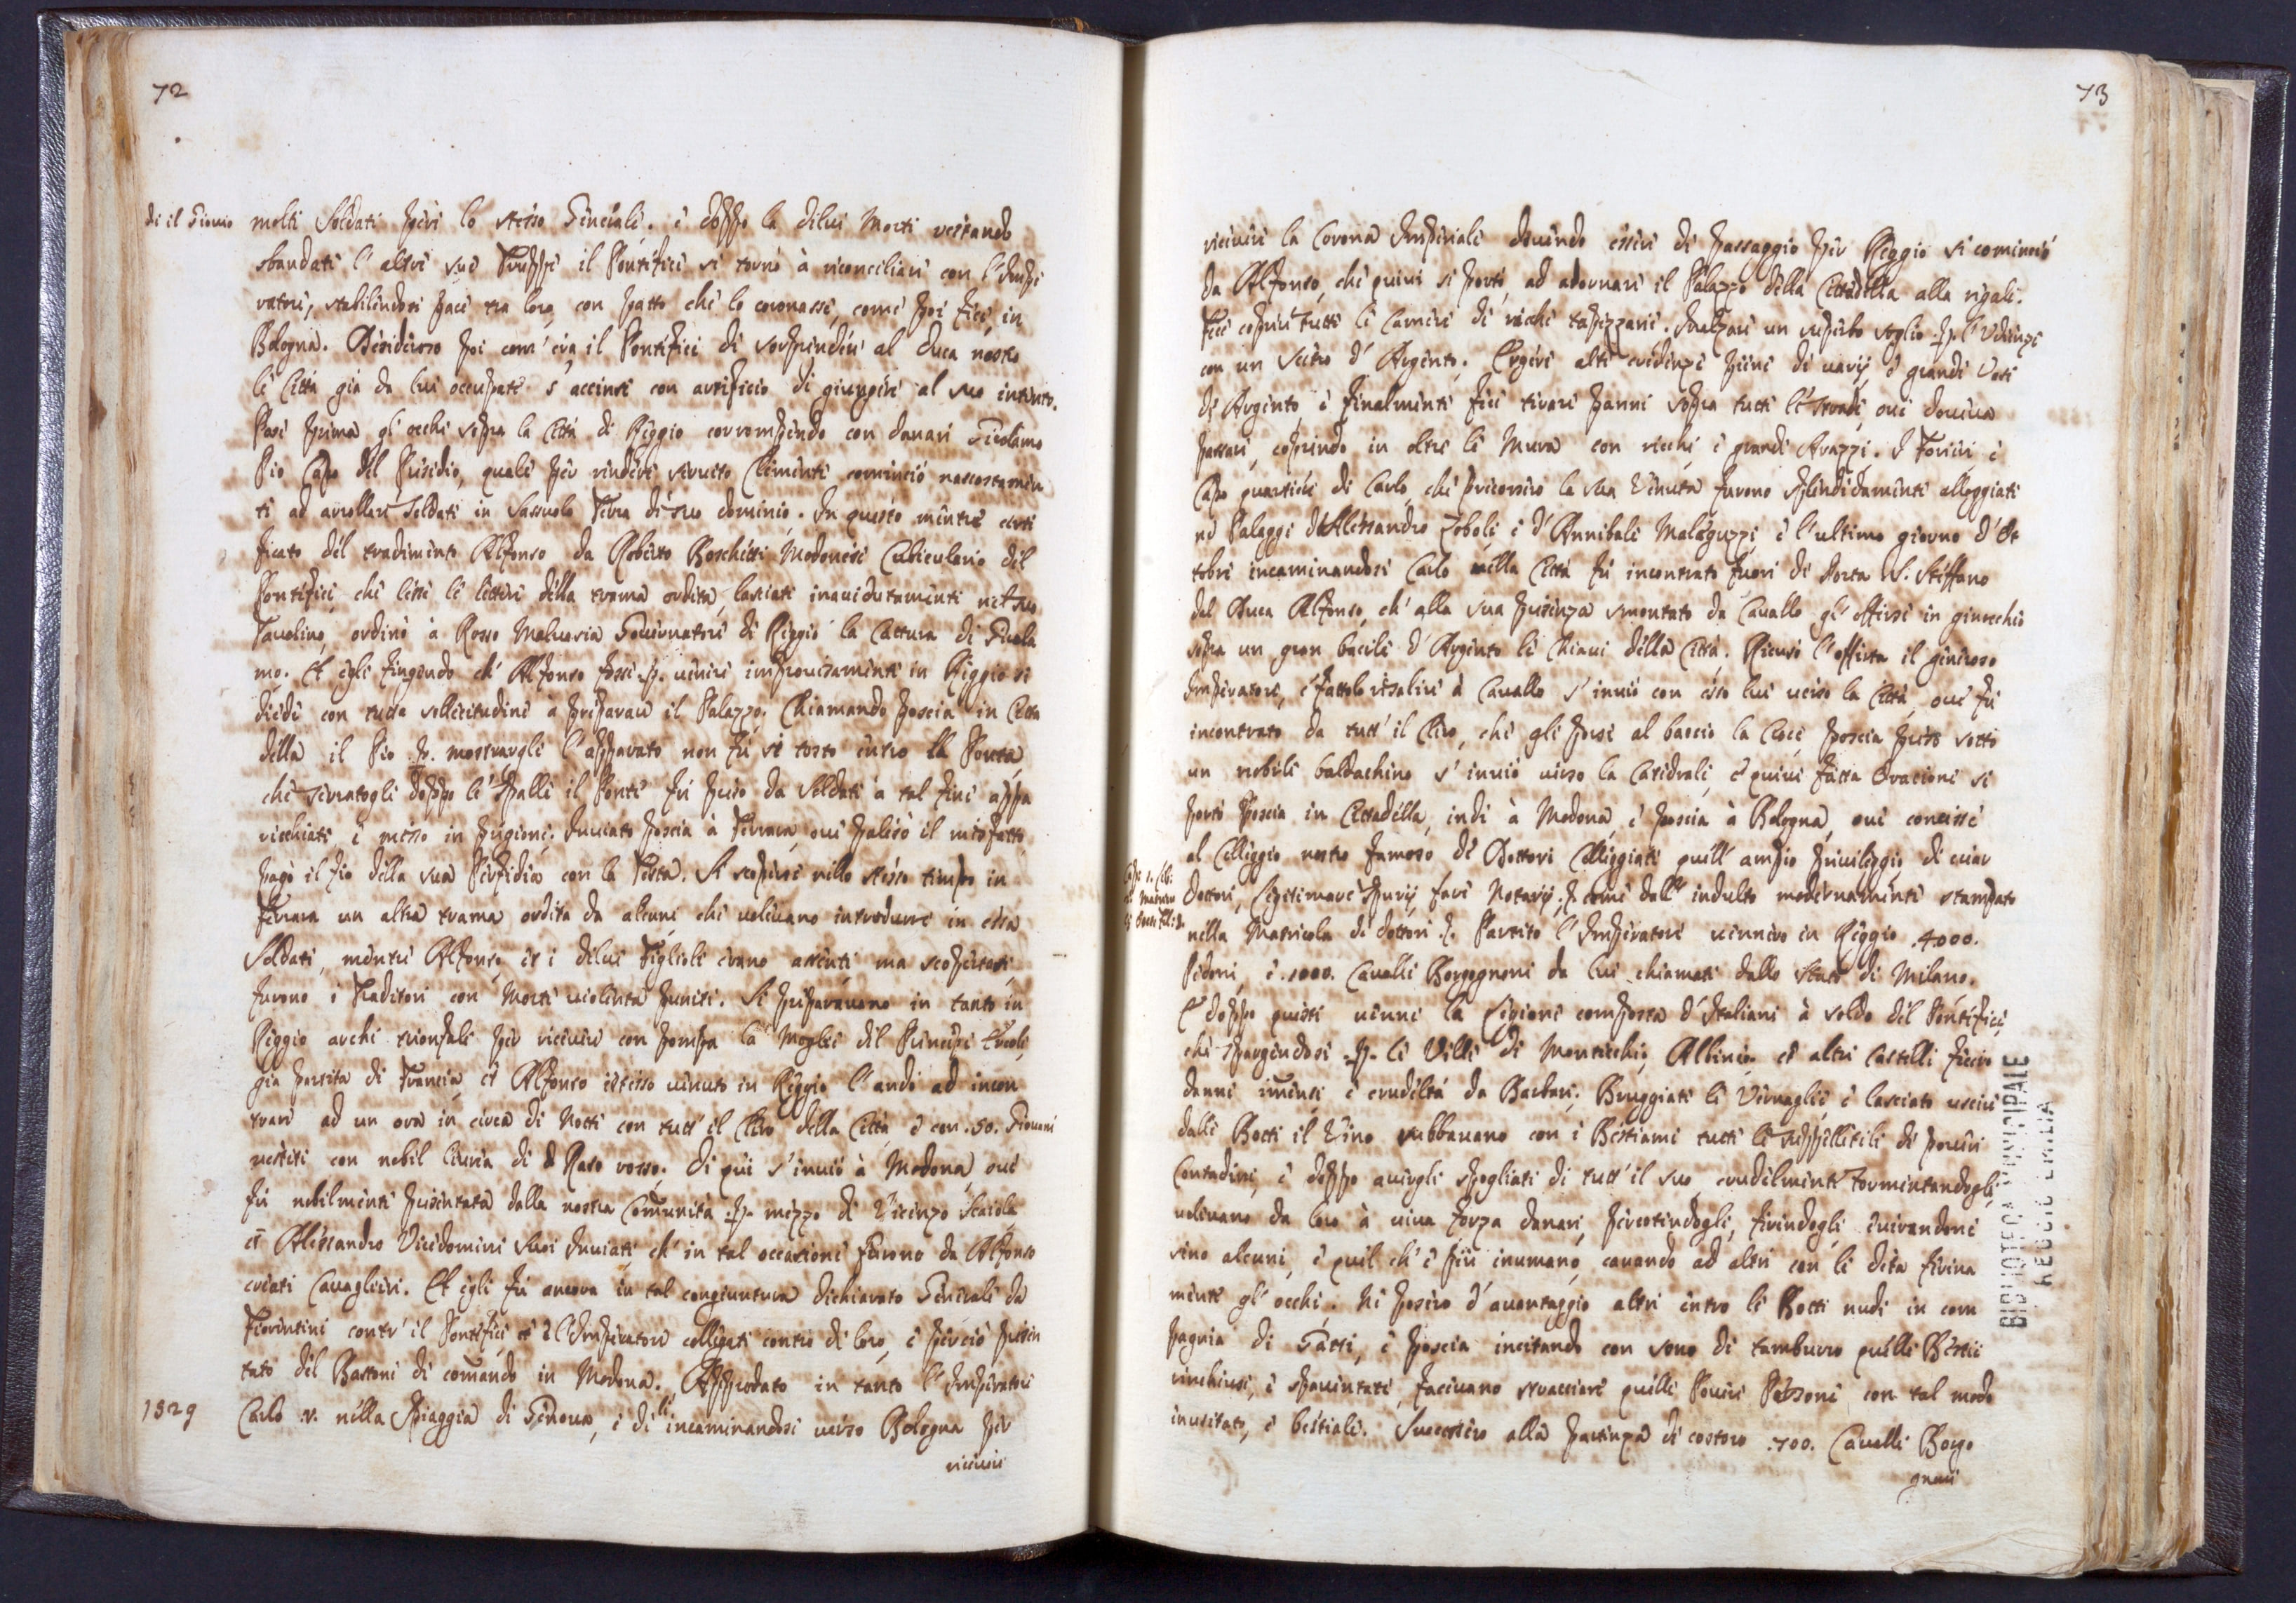 72
di il Giovio
molti Soldati perì lo stesso Generale. e doppo la dilui Morte restando
sbandate l'altre sue Truppe il Pontefice si tornò à riconciliare con l'Impe
ratore, stabilendosi pace tra loro, con patto che lo coronasse, come poi fece, in
Bologna. Desideroso poi com'era il Pontefice di sorprendere al Duca nostro
le Città già da lui occupate s'accinse con artificio di giungere al suo intento.
Pose prima gl'occhi sopra la Città di Reggio corrompendo con danari Girolamo
Pio Capo del Presidio, quale per rendere servito Clemente cominciò nascostamen
te ad arrollare Soldati in Sassuolo Terra di suo dominio. In questo mentre certi
ficato del tradimento Alfonso da Roberto Boschetti Modonese Cubiculario del
Pontefice, che lesse le lettere della trama ordita, lasciate inavedutamente nel suo
Tavolino, ordinò à Rosso Malvasia Governatore di Reggio la Cattura di Girola
mo. Et egli fingendo ch'Alfonso fosse p. venire improvisamente in Reggio si
diede con tutta sollecitudine à preparare il Palazzo. Chiamando poscia in Citta
della il Pio p. mostrargli l'apparato non fù sì tosto entro la Porta,
che serratogli doppo le spalle il Ponte fù preso da Soldati à tal fine appa
recchiati e messo in prigione. Inviato poscia à Ferrara, ove palesò il misfatto,
pagò il fio della sua Perfidia con la Testa. Si scoperse nello stesso tempo in
Ferrara un altra trama ordita da alcuni che volevano introdurre in essa
Soldati, mentre Alfonso, et i dilui Figlioli erano assenti ma scopertosi,
furono i Traditori con Morte violenta puniti. Si preparavano in tanto in
Reggio archi trionfali per ricevere con pompa la Moglie del Principe Ercole,
gia partita di Francia, et Alfonso istesso venuto in Reggio l'andò ad incon
trare ad un ora in circa di Notte con tutt'il Clero della Città e con .50. Giovani
vestiti con nobil livrea di Raso rosso. Di qui s'inviò à Modona, ove
fù nobilmente presentata dalla nostra Comunità p. mezzo di Vicenzo Scaiola
et Alessandro Vicedomini suoi Inviati, ch'in tal occasione furono da Alfonso
creati Cavaglieri. Et egli fù ancora in tal congiuntura dichiarato Generale da
Fiorentini contr'il Pontefice et l'Imperatore collegati contro di loro, e perciò presen
tato del Bastone di comando in Modona. Approdato in tanto l'Imperatore
1529
Carlo V. nella Spiaggia di Genova, e di lì incaminandosi verso Bologna per
ricevere
73
ricevere la Corona Imperiale dovendo essere di passaggio per Reggio si cominciò
da Alfonso, che quivi si portò, ad adornare il Palazzo della Cittadella alla regale.
Fece coprire tutte le Camere di ricche tapizzarie. Inalzare un superbo soglio p. l'Udienze
con un Scetro d'Argento. Ergere alte credenze piene di varij e grandi Vasi
di Argento, e finalmente fece tirare panni sopra tutte le strade, ove doveva
passare, coprendo in oltre le Mura con ricchi, e grandi Arazzi. I Forieri, e
Capo quartieri di Carlo, che precorsero la sua Venuta furono splendidamente alloggiati
ne Palaggi d'Alessandro Zoboli, e d'Annibale Maleguzzi e l'ultimo giorno d'Ot
tobre incaminandosi Carlo nella Città fù incontrato fuori di Porta S. Steffano
dal Duca Alfonso, ch'alla sua presenza smontato da Cavallo gl'offerse in ginocchio
sopra un gran bacile d'Argento le Chiavi della Città. Ricusò l'offerta il generoso
Imperatore, e fattolo risalire à Cavallo s'inviò con esso lui verso la Città, ove fù
incontrato da tutt'il Clero, che gli porse al baccio la Croce poscia preso sotto
un nobile baldachino s'inviò verso la Catedrale, e quivi fatta Oracione si
portò poscia in Cittadella, indi à Modona, e poscia à Bologna, ove concesse
al Colleggio nostro famoso de Dottori Colleggiati quell'ampio privileggio di crear
Dottori, Legitimare Spurij, fare Notarij. come dall'indulto modernamente stampato
nella Matricola de dottori. Partito l'Imperatore vennero in Reggio .4000.
Pedoni, e .1000. Cavalli Borgognoni da lui chiamati dallo Stato di Milano.
E doppo questi venne la Legione composta d'Italiani à soldo del Pontefice,
che spargendosi p. le Ville di Montecchio, Albinea, et altri Castelli fecero
danni imensi e crudeltà da Barbari. Bruggiati li Vernaglie, e lasciato uscire
dalle Botti il Vino rubbavano con i Bestiami tutti li suppellettili de poveri
Contadini, e doppo avergli spogliati di tutt'il suo, crudelmente tormentandogli,
volevano da loro à viva forza danari, percotendogli, ferendogli, evirandone
sino alcuni, e quel ch'è più inumano, cavando ad altri con le dita fierina
mente gl'occhi. Ne posero d'avantaggio altri entro le Botti nudi in com
pagnia di Gatti, e poscia incitando con sono di tamburro quelle Bestie
rinchiuse, e spaventate, facevano stracciare quelle Povere Persone con tal modo
inusitato, e bestiale. Successero alla partenza di costoro .700. Cavalli Borgo
gnoni
BIBLIOTECA MUNICIPALE
REGGIO EMILIA